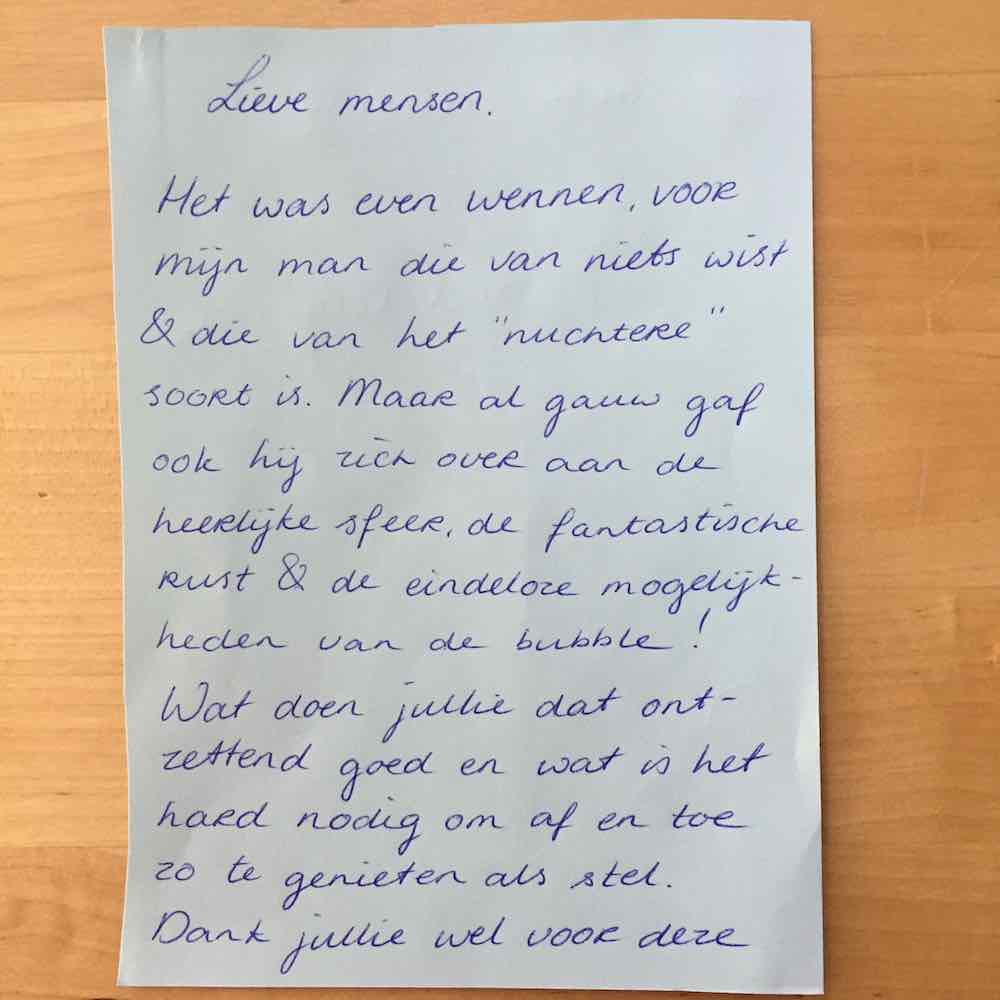 Lieve mensen.
Het was even wennen, voor
mijn man die van niets wist
& die van het "nuchtere"
soort is. Maar al gauw gaf
ook hij zich over aan de
heerlijke sfeer, de fantastische
rust & de eindeloze mogelijk-
heden van de bubble!
Wat doen jullie dat ont-
zettend goed en wat is het
hard nodig om af en toe
zo te genieten als stel.
Dank jullie wel voor deze